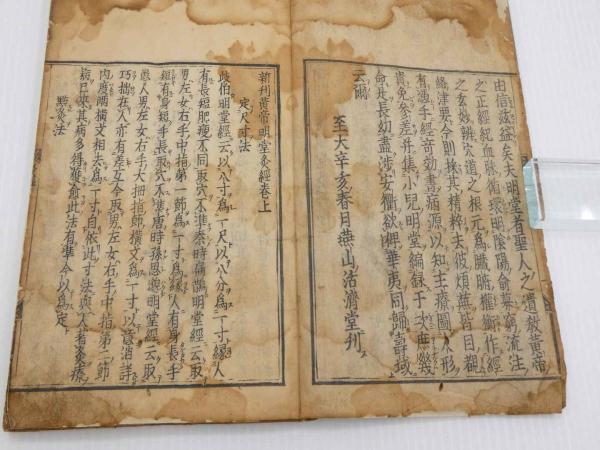 由信蓰益矣夫明堂者聖人之遺教黄帝
之正經紀血脉循環明陰陽俞募窮流注
之玄妙辨穴道之根元爲臟腑權衡作經
絡津要今則採其精粹去彼煩蕪皆目覩
有憑手經奇効書病源以知主療圖人形
貴免參差并集小兒明堂編録于次庶幾
長幼盡渉安衢欲俾華夷同歸壽域
云爾
至大辛亥春月燕山活濟堂刊
新刊黄帝明堂灸經卷上
定尺寸法
岐伯明堂經云以八寸爲一尺以八分爲一寸縁人
有長短肥瘦不同取穴不準秦時扁鵲明堂經云取
男左女右手中指第一節爲一寸爲縁人有身長手
短有身短手長取穴不準唐時孫思邈明堂經云取
患人男左女右手大拇指節横文爲一寸以意消詳
巧拙在人亦有差互今取男左女右手中指第二節
内度兩横文相去爲一寸自依此寸法與人着灸療
病已來其病多得獲愈此法有準今以爲定
點灸法